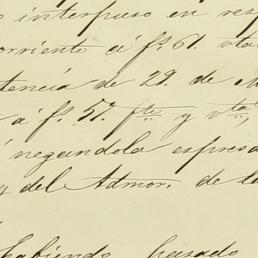 interpuso en res
orriente á fs. 61. vta
tencia de 29. de M
á fs. 57. fte y vta,
negandola expresa
y del Admor. de la
habiendo pasado